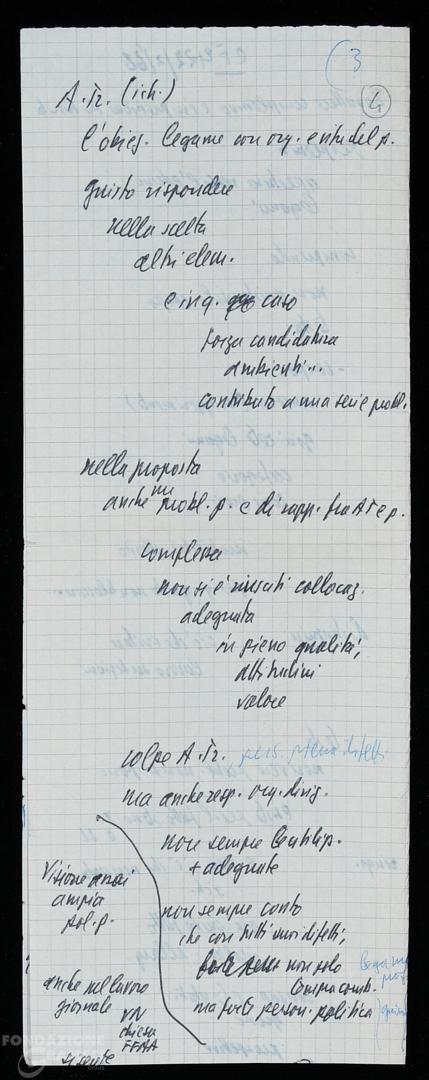 3
4
A. Tr. (ich.)
l'obiez. legame con org. e vita del p.
giusto rispondere
nella scelta
altri elem.
e in q. caso
forza candidatura
ambienti...
contributo a una serie probl.
nella proposta
anche un probl. p. e di rapp. fra A Tr e p.
complessa
non si è riusciti collocaz.
adeguata
in pieno qualità,
attitudini
valore
colpe A. Tr. pers. piena difetti
ma anche resp. org. dirig.
non sempre
+ adeguate
non sempre conto
che con tutti suoi difetti,
non solo
tempra comb.
ma forte person. politica
Visione assai
ampia
pol. p.
anche nel lavoro
giornale
VN
chiesa
FFAA
si sente
FONDAZIONE
onlus